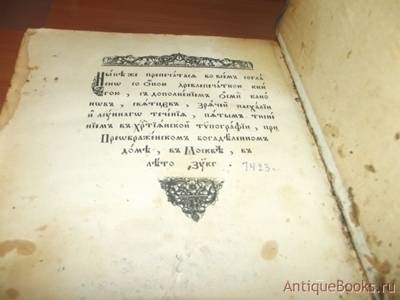 Нынѣ же препечатася во всемъ согла
сно со оною древлепечатною кни
гою, съ дополненїемъ осми кано
нѡвъ, свѧтцевъ, зрѧчей пасхалїи
и лꙋннагѡ теченїѧ, пѧтымъ тисне
нїемъ въ хрⷭ҇тїѧнской тѷпографїи, при
Преѡбраженскомъ богадѣленномъ
домѣ, въ Москвѣ, въ
лѣто ҂зꙋкг. 7423.
AntiqueBooks.ru